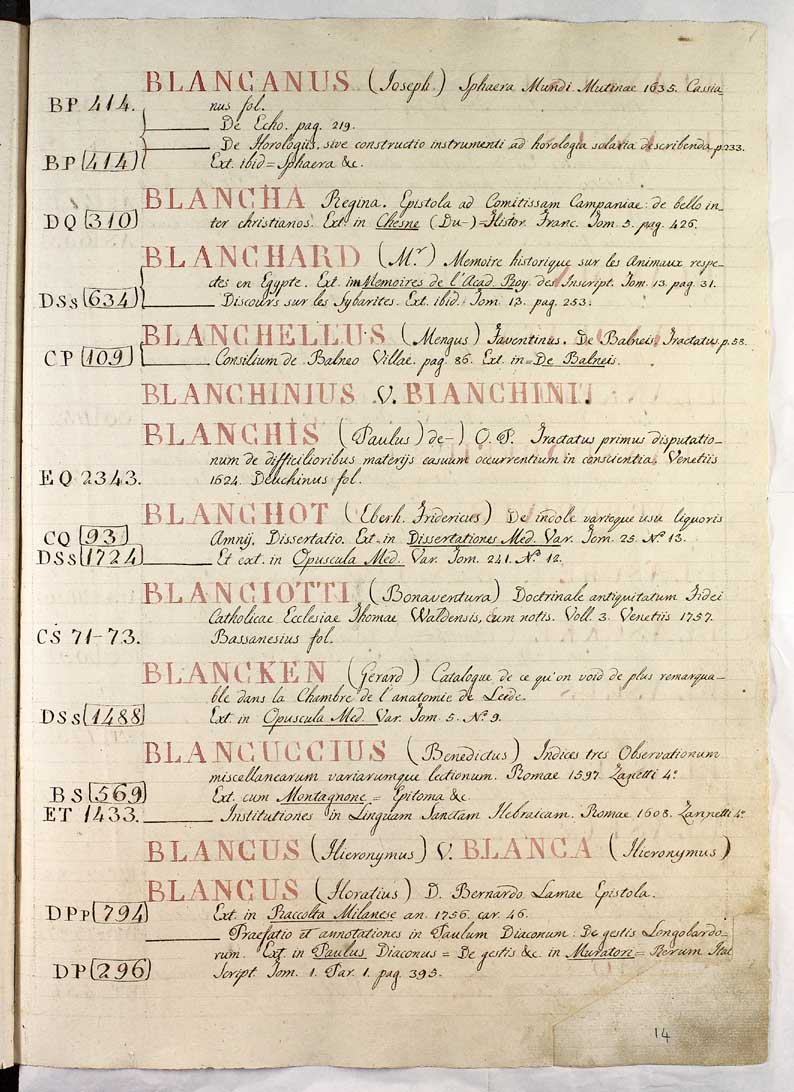 BLANCANUS (Joseph.) Sphaera Mundi. Mutinae 1635. Cassia-
BP 414. nus fol.
De Echo. pag. 219.
De Horologiis, sive constructio instrumenti ad horologia solaria describenda p. 233.
BP 414 Ext. ibid = Sphaera &c.
BLANCHA Regina. Epistola ad Comitissam Campaniae: de bello in-
DQ 310 ter christianos. Ext. in Chesne (Du-) = Histor. Franc. Tom. 5. pag. 426.
BLANCHARD (Mr.) Memoire historique sur les Animaux respe-
ctes en Egypte. Ext. in Memoires de l'Acad. Roy. des Inscript. Tom. 13. pag. 31.
DSs 634 Discours sur les Sybarites. Ext. ibid. Tom. 13. pag. 253.
BLANCHELLUS (Mengus) Faventinus. De Balneis, Tractatus p. 58.
CP 109 Consilium de Balneo Villae. pag. 86. Ext. in = De Balneis.
BLANCHINIUS V. BIANCHINI.
BLANCHIS (Paulus) de-) O. P. Tractatus primus disputatio-
num de difficilioribus materijs casuum occurrentium in conscientia. Venetiis
EQ 2343. 1624. Deuchinus fol.
BLANCHOT (Eberh. Fridericus) De indole varioque usu liquoris
CQ 93 Amnij. Dissertatio. Ext. in Dissertationes Med. Var. Tom. 25. No. 13.
DSs 1724 Et ext. in Opuscula Med. Var. Tom. 241. No. 12.
BLANCIOTTI (Bonaventura) Doctrinale antiquitatum Fidei
Catholicae Ecclesiae Thomae Waldensis, cum notis. Voll. 3. Venetiis 1757.
CS 71-73. Bassanesius fol.
BLANCKEN (Gerard) Catalogue de ce qu'on void de plus remarqua-
ble dans la Chambre de l'anatomie de Leide.
DSs 1488 Ext. in Opuscula Med. Var. Tom. 5. No. 9.
BLANCUCCIUS (Benedictus) Indices tres Observationum
miscellanearum variarumque lectionum. Romae 1597. Zanetti 4o.
BS 569 Ext. cum Montagnone = Epitoma &c.
ET 1433. Institutiones in Linguam Sanctam Hebraicam. Romae 1608. Zannetti 4o.
BLANCUS (Hieronymus) V. BLANCA (Hieronymus)
BLANCUS (Horatius) D. Bernardo Lamae Epistola.
DPp 794 Ext. in Raccolta Milanese an. 1756. car. 46.
Praefatio et annotationes in Paulum Diaconum: De gestis Longobardo-
rum. Ext. in Paulus Diaconus = De gestis &c. in Muratori = Rerum Ital
DP 296 Script. Tom. 1. Par. 1. pag. 395.
14